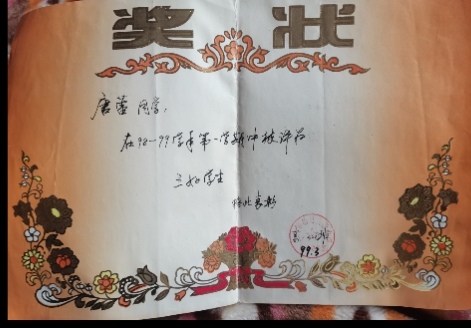 奖状
唐蕾同学,
在98-99学年第一学期中被评为
三好学生
特此表彰
99.3